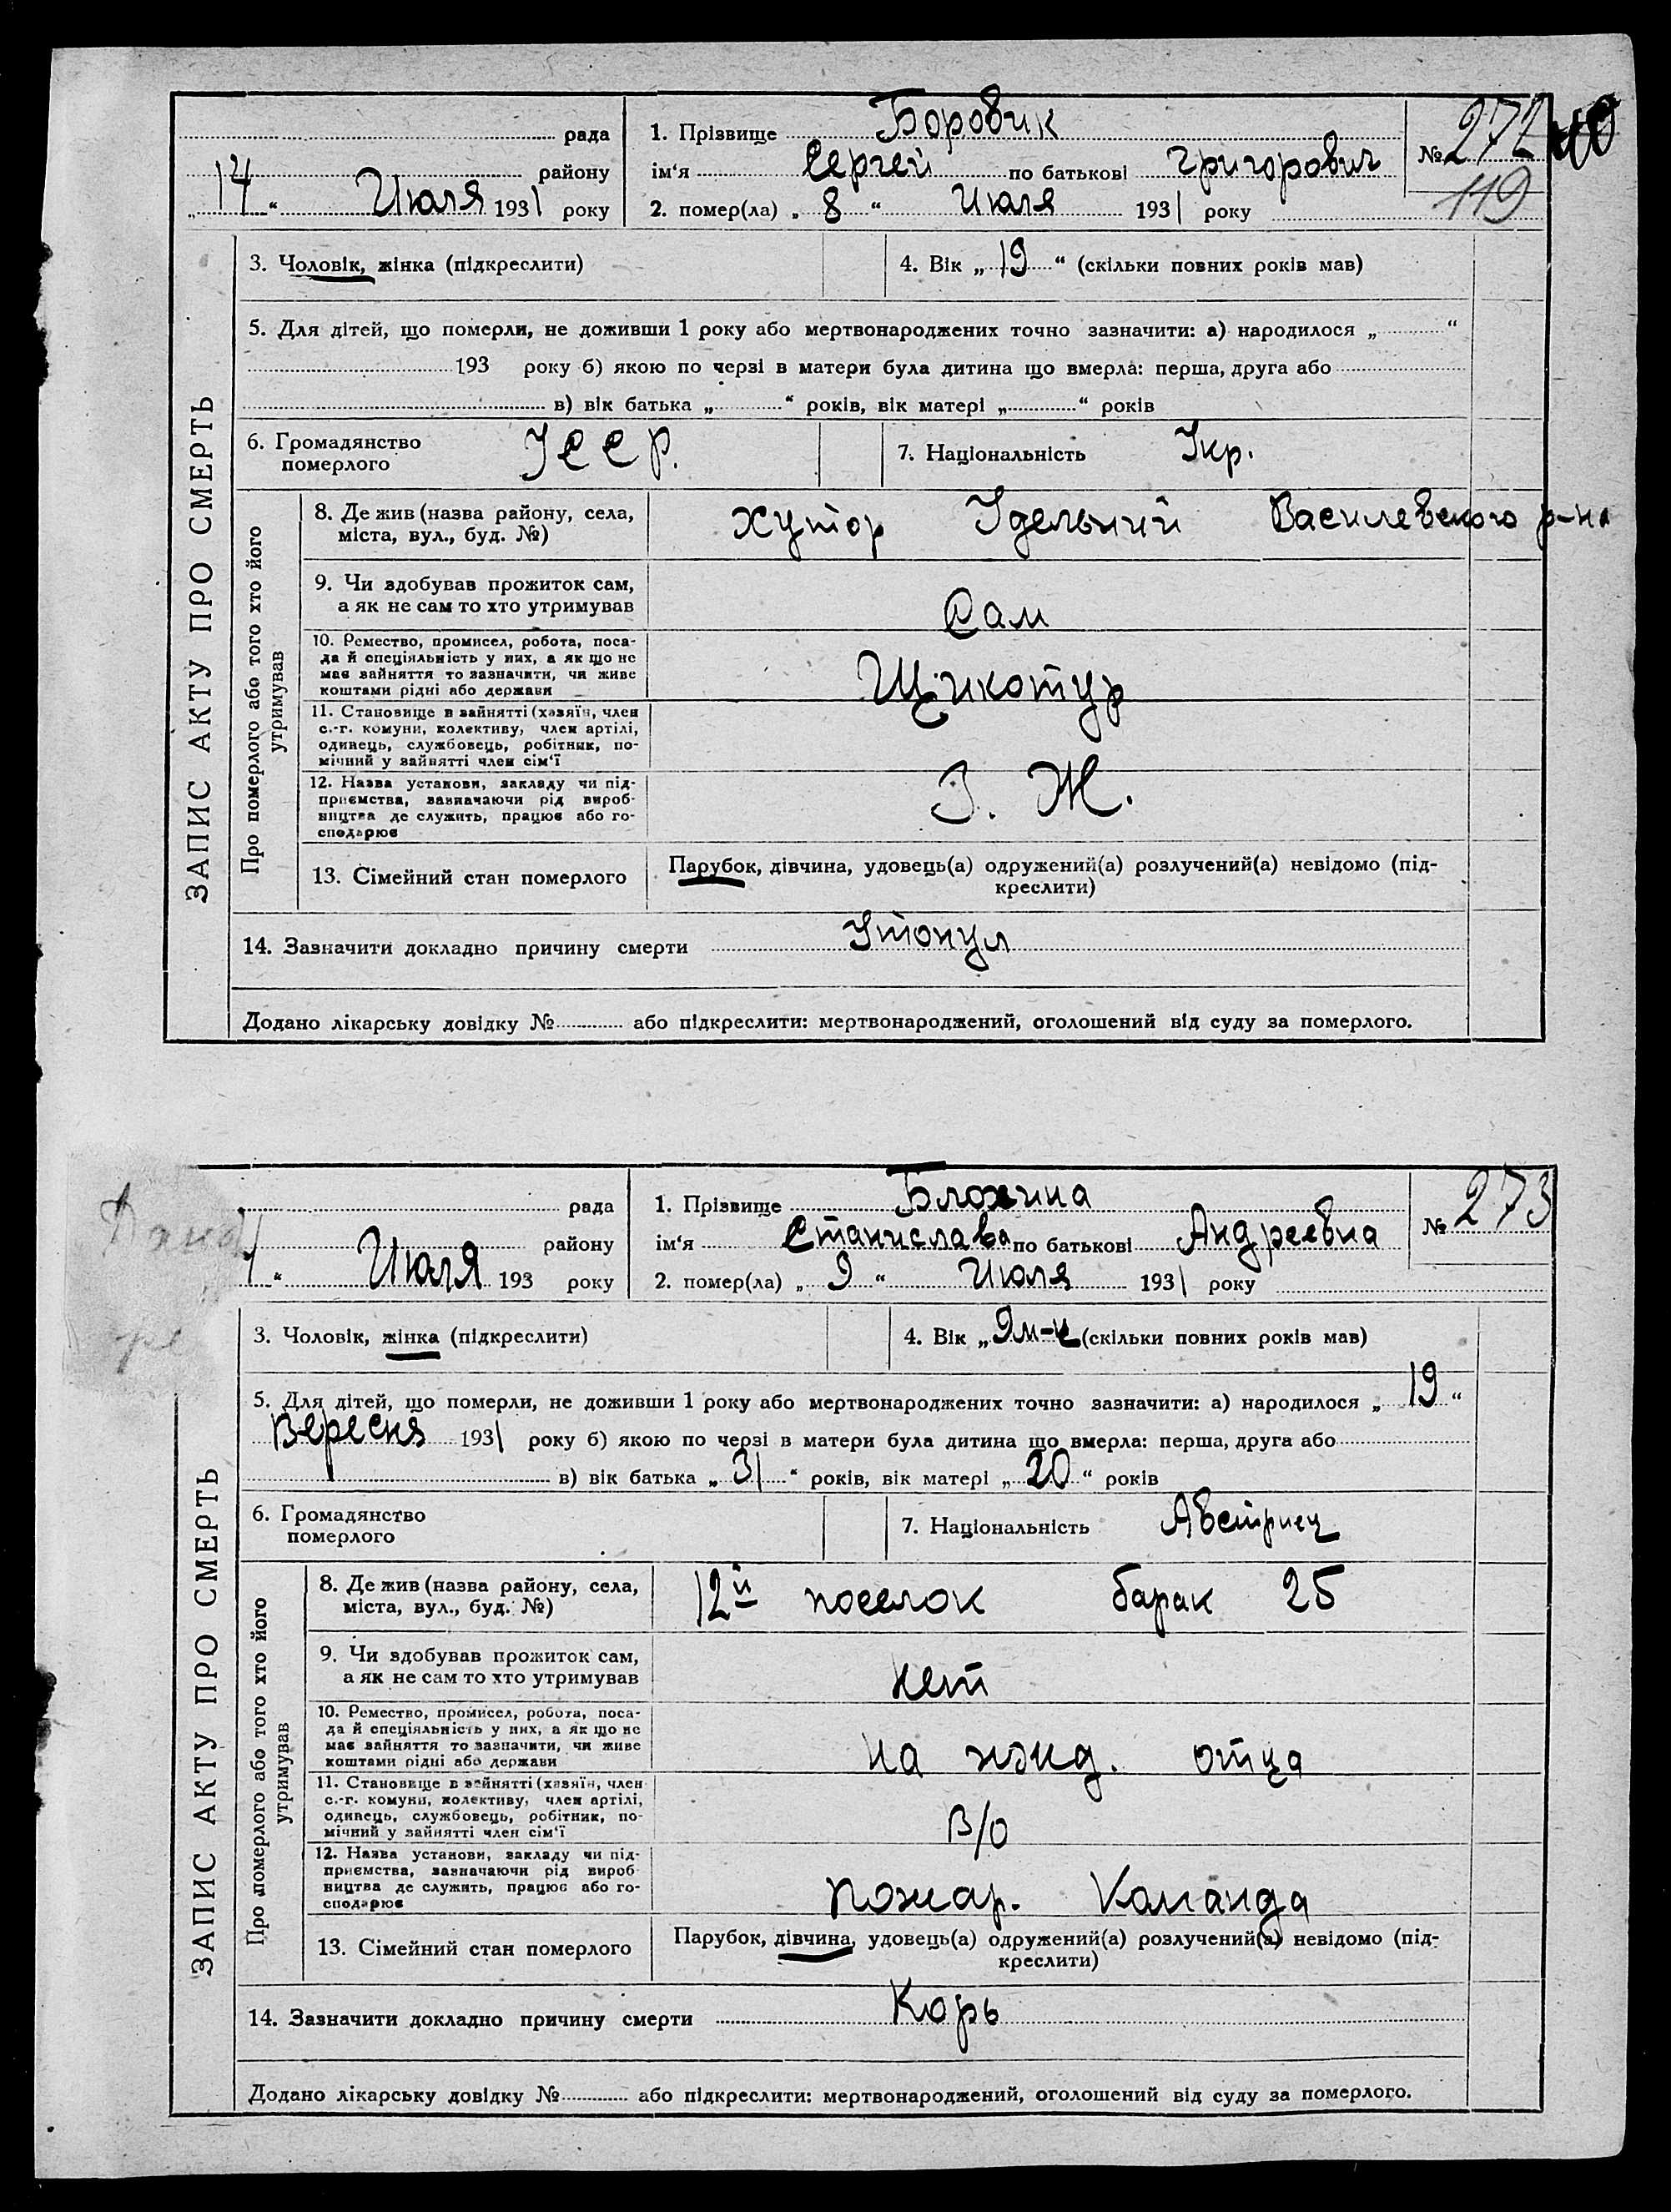 рада
1. Прізвище Боровик
№ 272
району
ім‘я Сергей по батькові Григорович
119
„14“ Июля 1931 року
2. помер(ла) „8“ Июля 1931 року
3. Чоловік, жінка (підкреслити)
4. Вік „19“ (скільки повних років мав)
5. Для дітей, що померли, не доживши 1 року або мертвонароджених точно зазначити: а) народилося „ “
193 року б) якою по черзі в матери була дитина що вмерла: перша, друга або
в) вік батька „ “ років, вік матері „ “ років
6. Громадянство
померлого
УССР.
7. Національність Укр.
ЗАПИС АКТУ ПРО СМЕРТЬ
Про померлого або того хто його
утримував
8. Де жив (назва району, села,
міста, вул., буд. №)
хутор Удельний Василевского р-на
9. Чи здобував прожиток сам,
а як не сам то хто утримував
Сам
10. Ремество, промисел, робота, поса-
да й спеціяльність у них, а як що не
має зайняття то зазначити, чи живе
коштами рідні або держави
Щикотур
11. Становище в зайнятті (хазяїн, член
с.-г. комуни, колективу, член артілі,
одинець, службовець, робітник, по-
мічний у зайнятті член сім‘ї
12. Назва установи, закладу чи під-
приємства, зазначаючи рід вироб-
ництва де служить, працює або го-
сподарює
З. Ж.
13. Сімейний стан померлого
Парубок, дівчина, удовець(а) одружений(а) розлучений(а) невідомо (під-
креслити)
14. Зазначити докладно причину смерти Утонул
Додано лікарську довідку № або підкреслити: мертвонароджений, оголошений від суду за померлого.
рада
1. Прізвище Блохина
№ 273
району
ім‘я Станислава по батькові Андреевна
“ Июля 193 року
2. помер(ла) „9“ Июля 1931 року
3. Чоловік, жінка (підкреслити)
4. Вік „9 м-ц (скільки повних років мав)
5. Для дітей, що померли, не доживши 1 року або мертвонароджених точно зазначити: а) народилося „19“
Вересня 1931 року б) якою по черзі в матери була дитина що вмерла: перша, друга або
в) вік батька „31“ років, вік матері „20“ років
6. Громадянство
померлого
7. Національність Австриец
ЗАПИС АКТУ ПРО СМЕРТЬ
Про померлого або того хто його
утримував
8. Де жив (назва району, села,
міста, вул., буд. №)
12й поселок барак 25
9. Чи здобував прожиток сам,
а як не сам то хто утримував
нет
10. Ремество, промисел, робота, поса-
да й спеціяльність у них, а як що не
має зайняття то зазначити, чи живе
коштами рідні або держави
на ижид. отца
11. Становище в зайнятті (хазяїн, член
с.-г. комуни, колективу, член артілі,
одинець, службовець, робітник, по-
мічний у зайнятті член сім‘ї
В/О
12. Назва установи, закладу чи під-
приємства, зазначаючи рід вироб-
ництва де служить, працює або го-
сподарює
Пожар. Команда
13. Сімейний стан померлого
Парубок, дівчина, удовець(а) одружений(а) розлучений(а) невідомо (під-
креслити)
14. Зазначити докладно причину смерти Корь
Додано лікарську довідку № або підкреслити: мертвонароджений, оголошений від суду за померлого.